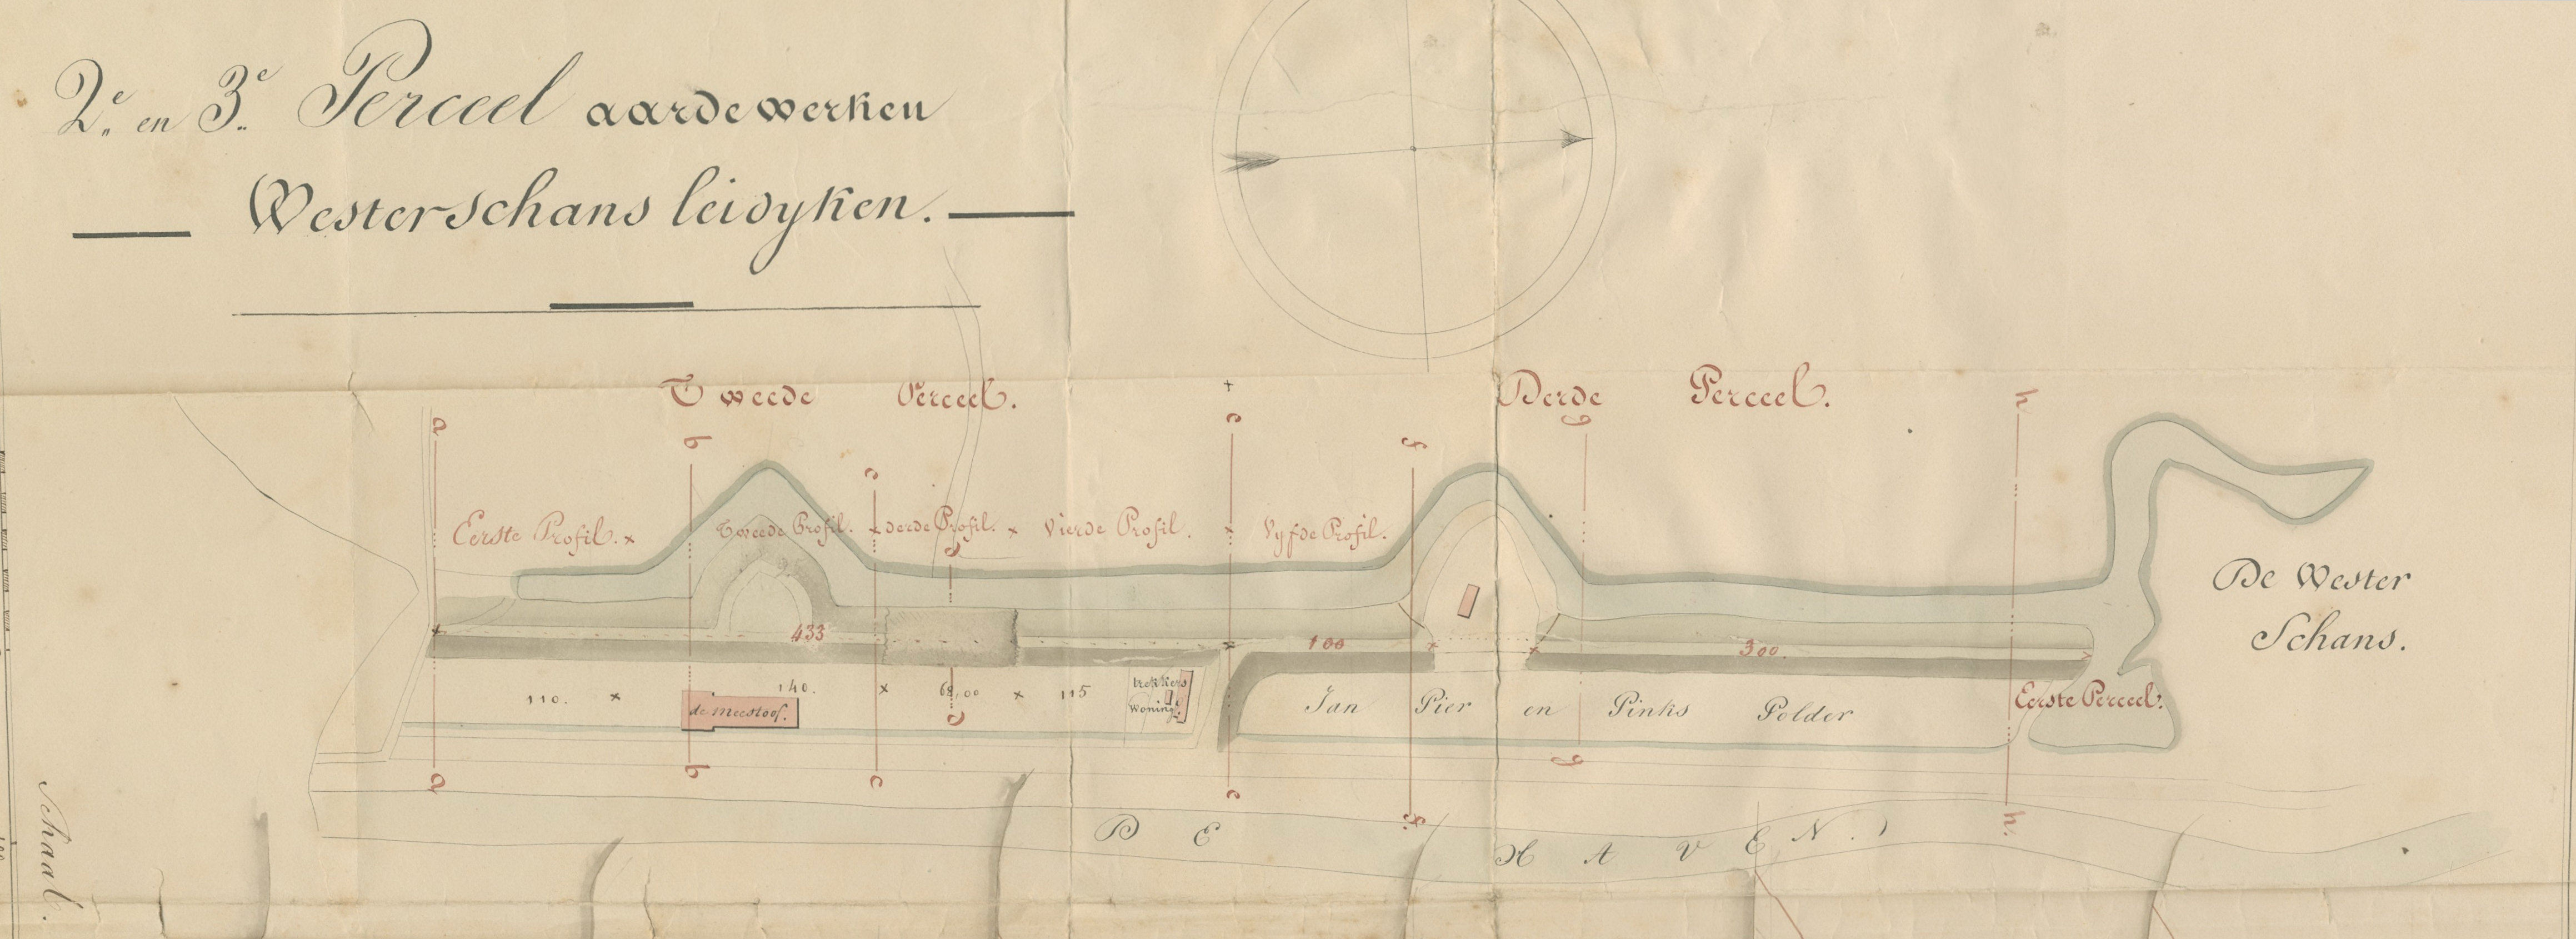 2e en 3e Perceel aardewerken
Westerschans leidyken.
Tweede Perceel.
Derde Perceel.
a b c e f g h
Eerste Profil. Tweede Profil. derde Profil. Vierde Profil. Vyfde Profil.
d
De Wester
Schans.
433 100 300.
110. 140. 68,00 115
de meestoof.
trekkers
woning
Jan Pier en Pinks Polder
Eerste Perceel.
d
a b c e f. g h.
DE HAVEN.
Schaal.